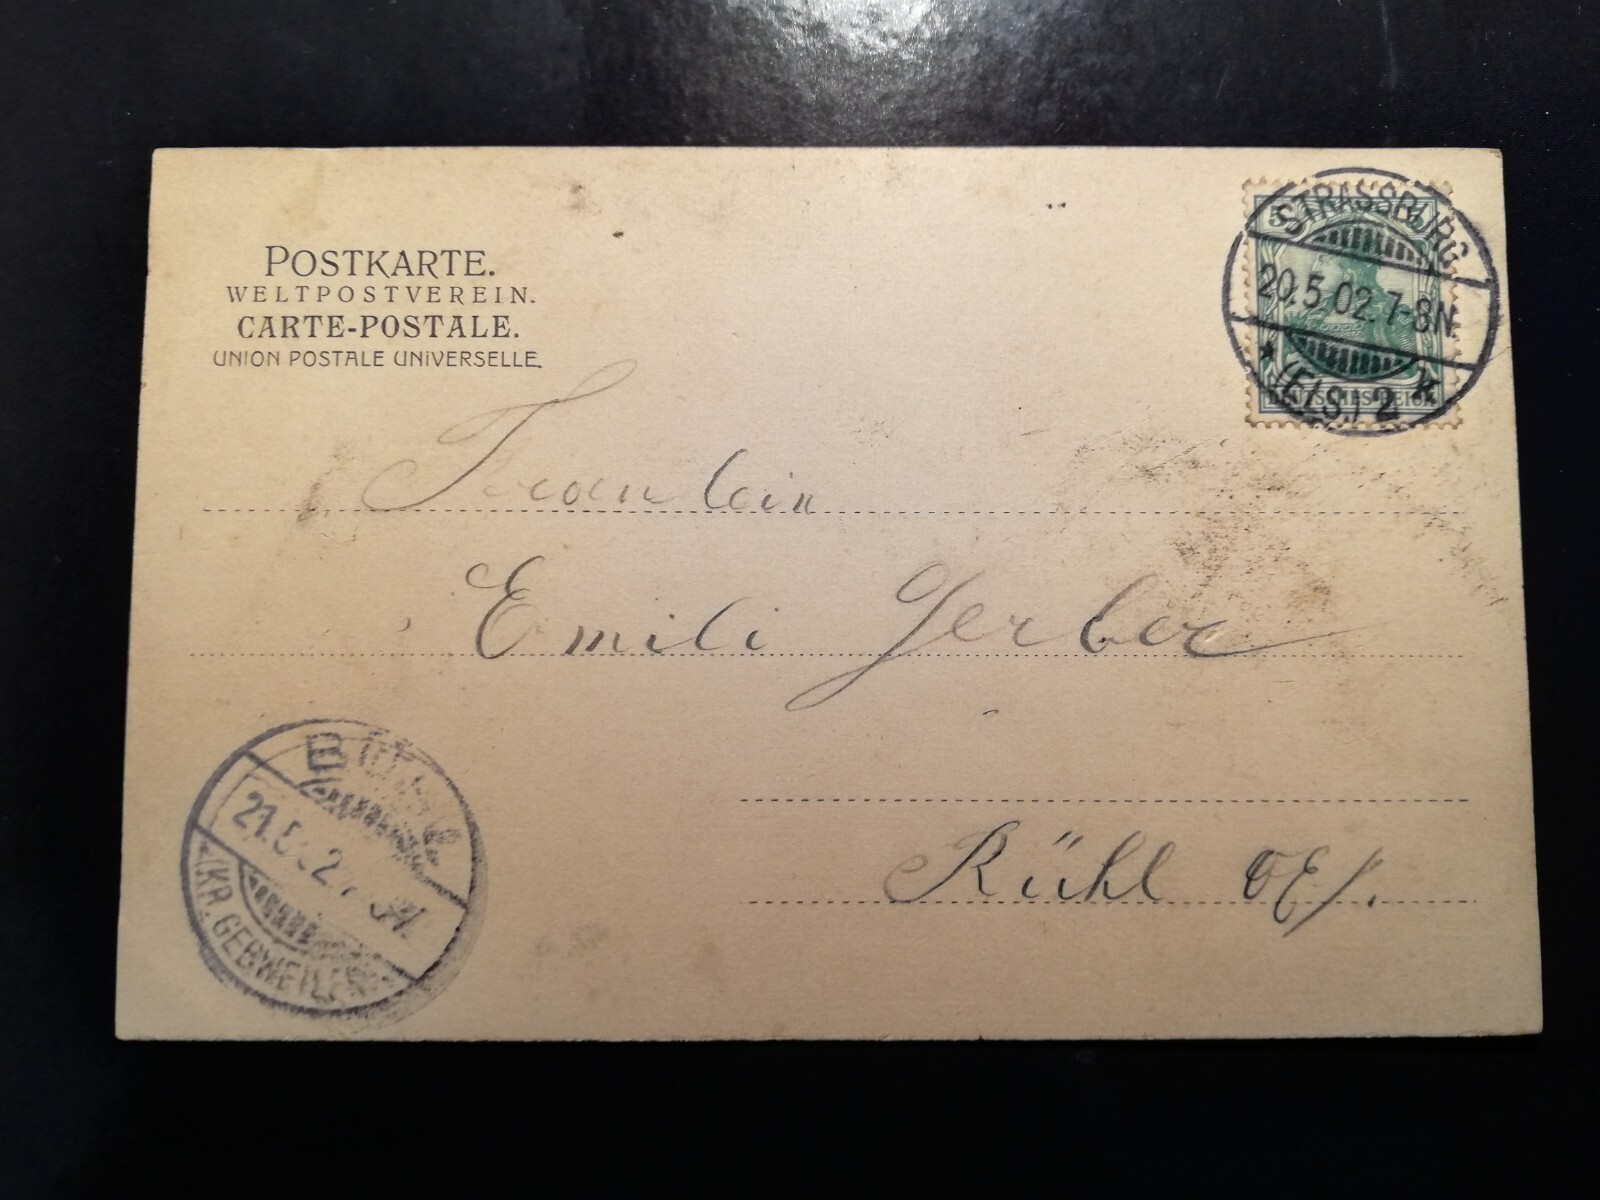 POSTKARTE.
WELTPOSTVEREIN.
CARTE-POSTALE.
UNION POSTALE UNIVERSELLE.
5
STRASSBURG
20.5.02.7-8N.
* (ELS.) 2 *
DEUTSCHES REICH
Fraeulein
Emili Gerber
Rühl
(KR. GEBWEILER)